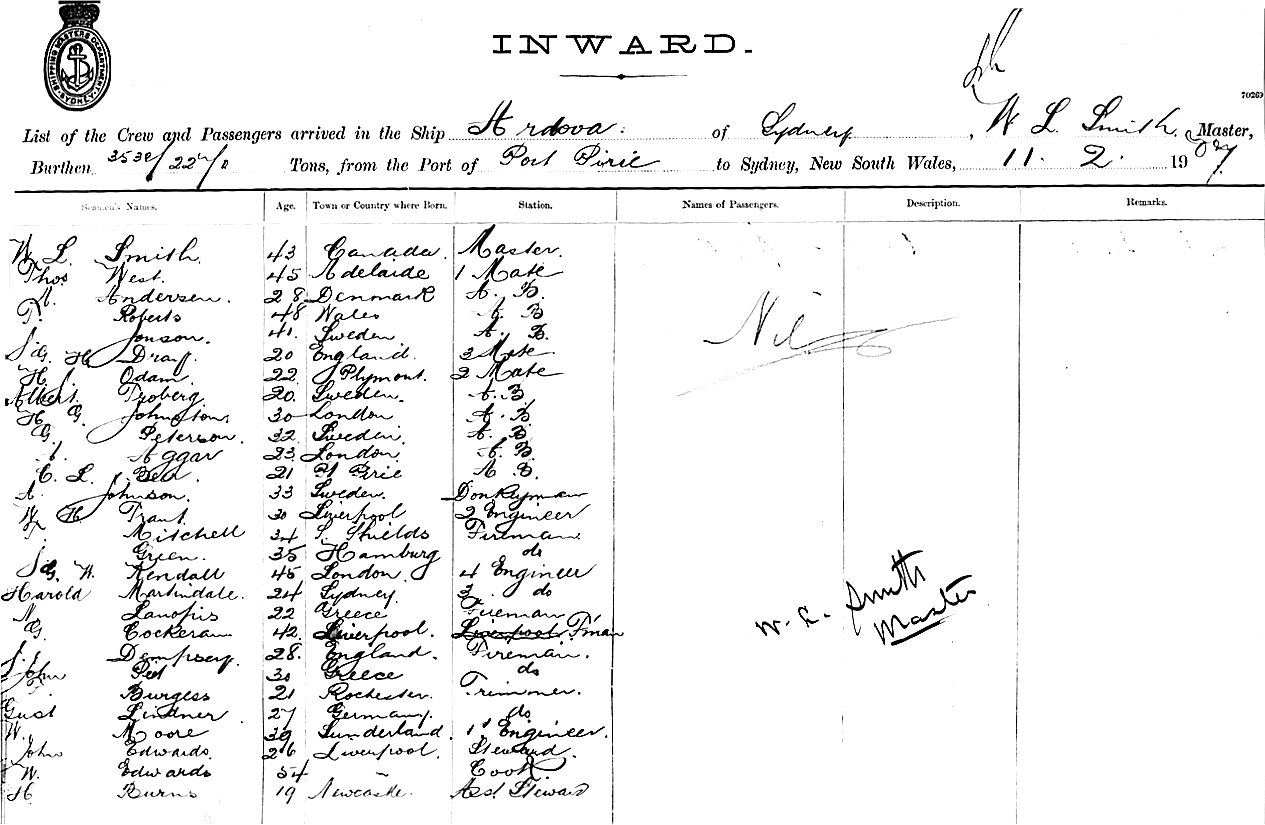 SHIPPING MASTERS DEPARTMENT SYDNEY
INWARD.
70269
List of the Crew and Passengers arrived in the Ship Ardova of Sydney, W L Smith, Master,
Burthen Tons, from the Port of Port Pirie to Sydney, New South Wales, 11. 2. 19
Seamen's Names. Age. Town or Country where Born. Station. Names of Passengers. Description. Remarks.
W. L. Smith. 43 Canada. Master.
Thos West. 45 Adelaide 1 Mate
A. Andersen. 28 Denmark A. B.
T. Roberts 48 Wales A. B
Jonson. 41. Sweden. A. B.
H Dray. 20 England. 3 Mate
H. J. Odam. 22. Plymout. 2 Mate
Nil
Albert Troberg. 20. Sweden. A. B.
H. G. Johnston. 30 London A. B.
G. Peterson. 32 Sweden A. B.
A. Aggar 23 London. A. B
C. L. 21 Pt Pirie A B.
A. Johnson. 33 Sweden. Donkeyman
W H Trant. 30 Liverpool 2 Engineer
Mitchell 34 S. Shields Fireman.
Green. 35 Hamburg do
G. W. Kendall 45 London. 4 Engineer
Harold Martindale. 24 Sydney. 3. do
N. 22 Greece Fireman
G. Cockeram 42. Liverpool. Liverpool F'man
W. L. Smith
Master
J. Dempsey. 28. England. Fireman.
John 30 Greece do
Burgess 21 Rochester. Trimmer.
Gust Lindner 27 Germany. do
W. Moore 39 Sunderland. 1st Engineer.
John Edwards. 26 Liverpool. Steward.
W. Edwards 54 " Cook
H Burns 19 Newcastle. Asst Steward